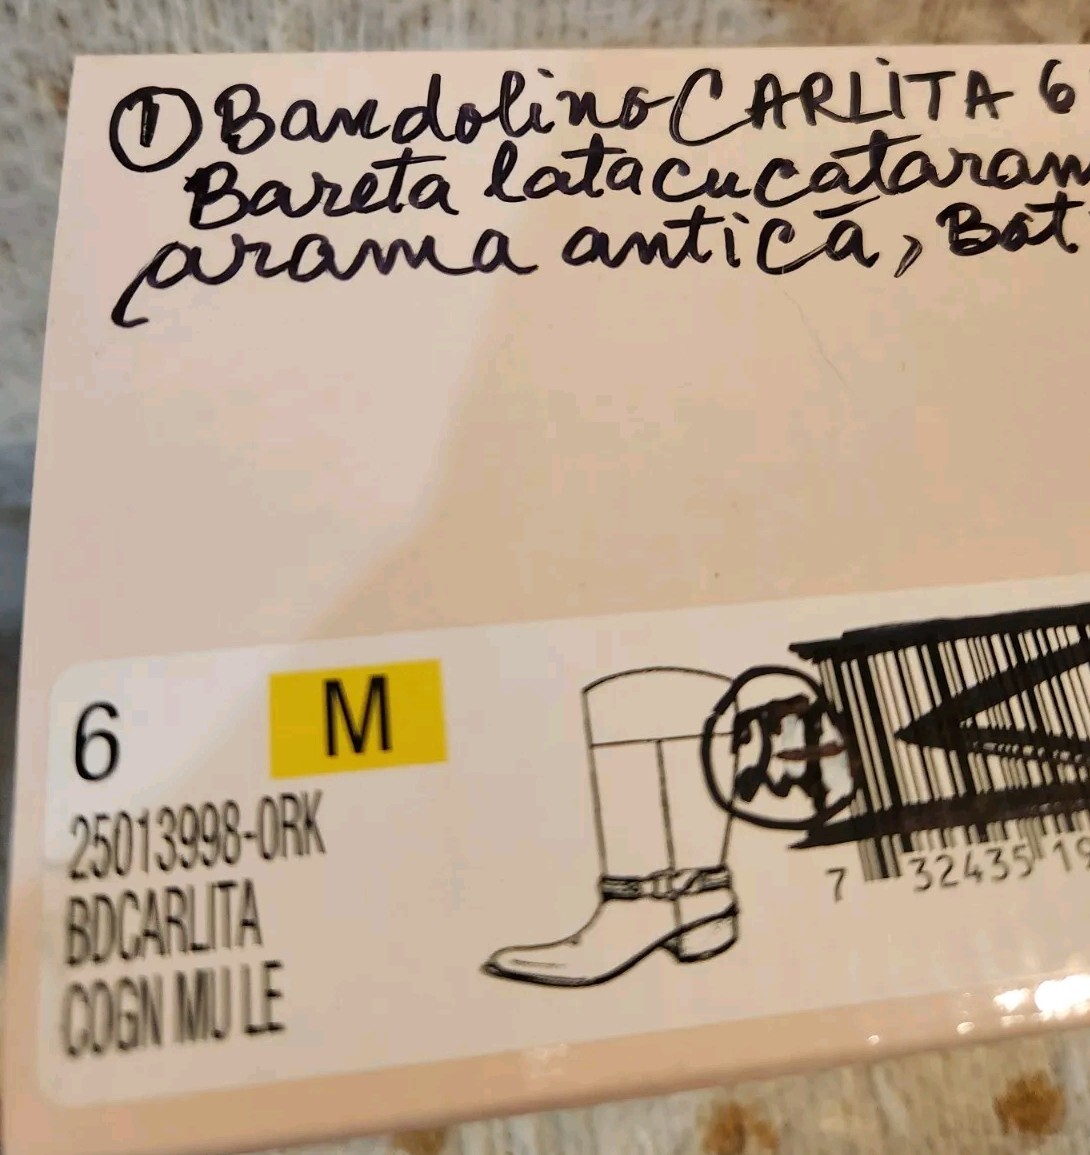 ① Bandolino CARLITA 6
Bareta lata cu cataram
arama antică, Bot
6 M
25013998-0RK
BDCARLITA
COGN MU LE
7 32435 19